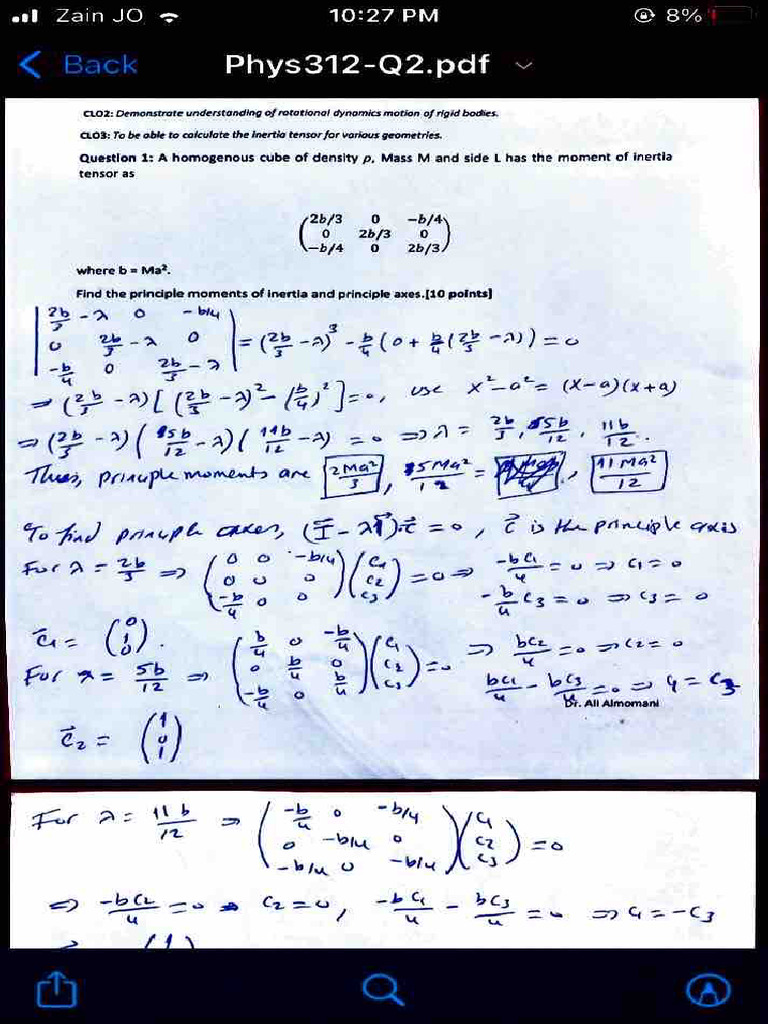 Zain JO 10:27 PM 8%
Back Phys312-Q2.pdf
CLO2: Demonstrate understanding of rotational dynamics motion of rigid bodies.
CLO3: To be able to calculate the inertia tensor for various geometries.
Question 1: A homogenous cube of density ρ, Mass M and side L has the moment of inertia
tensor as
2b/3 0 -b/4
0 2b/3 0
-b/4 0 2b/3
where b = Ma².
Find the principle moments of inertia and principle axes.[10 points]
| 2b/3 - λ 0 -b/4 |
| 0 2b/3 - λ 0 | = (2b/3 - λ)³ - b/4 (0 + b/4 (2b/3 - λ)) = 0
| -b/4 0 2b/3 - λ |
⇒ (2b/3 - λ) [ (2b/3 - λ)² - (b/4)² ] = 0, use x² - a² = (x-a)(x+a)
⇒ (2b/3 - λ) ( 5b/12 - λ) ( 11b/12 - λ) = 0 ⇒ λ = 2b/3, 5b/12, 11b/12.
Thus, principle moments are 2Ma²/3, 5Ma²/12 = , 11Ma²/12
To find principle axes, (I - λ1)c = 0, c is the principle axis
For λ = 2b/3 ⇒ (0 0 -b/4; 0 0 0; -b/4 0 0) (c1; c2; c3) = 0 ⇒ -bc1/4 = 0 ⇒ c1 = 0
-b/4 c3 = 0 ⇒ c3 = 0
c1 = (0; 1; 0).
For λ = 5b/12 ⇒ (b/4 0 -b/4; 0 b/4 0; -b/4 0 b/4) (c1; c2; c3) = 0 ⇒ bc2/4 = 0 ⇒ c2 = 0
bc1/4 - bc3/4 = 0 ⇒ c1 = c3
Dr. Ali Almomani
c2 = (1; 0; 1)
For λ = 11b/12 ⇒ (-b/4 0 -b/4; 0 -b/4 0; -b/4 0 -b/4) (c1; c2; c3) = 0
⇒ -bc2/4 = 0 ⇒ c2 = 0, -bc1/4 - bc3/4 = 0 ⇒ c1 = -c3